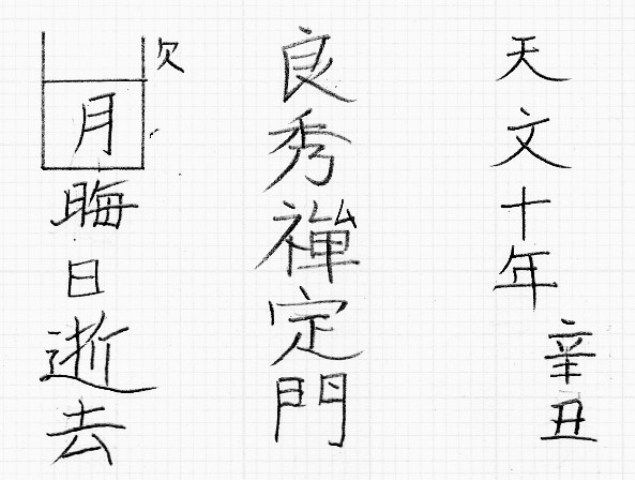 天文十年 辛丑
良秀禪定門
欠
月晦日逝去